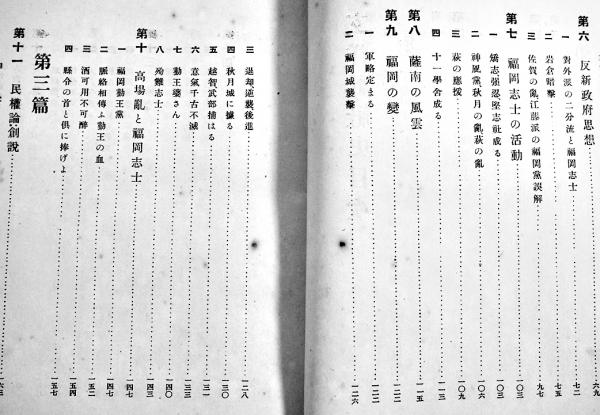 第六 反新政府思想 六九
一 對外派の二分流と福岡志士 七二
二 岩倉暗擊 七五
三 佐賀の亂江藤派の福岡黨誤解 九七
第七 福岡志士の活動 一〇三
一 矯志强忍堅志社成る 一〇三
二 神風黨秋月の亂萩の亂 一〇六
三 萩の應援 一〇九
四 十一學舍成る 一一三
第八 薩南の風雲 一一五
第九 福岡の變 一二二
一 軍略定まる 一二二
二 福岡城襲擊 一二六
三 退却逆襲後進 一二八
四 秋月城に據る 一三〇
五 越智武部捕はる 一三一
六 意氣千古不滅 一三五
七 勤王婆さん 一四〇
八 殉難志士 一四三
第十 高場亂と福岡志士 一四七
一 福岡勤王黨 一四七
二 脈絡相傳ふ勤王の血 一五二
三 酒可用不可醉 一五四
四 縣令の首と俱に捧げよ 一五七
第三篇
第十一 民權論創說 一六三